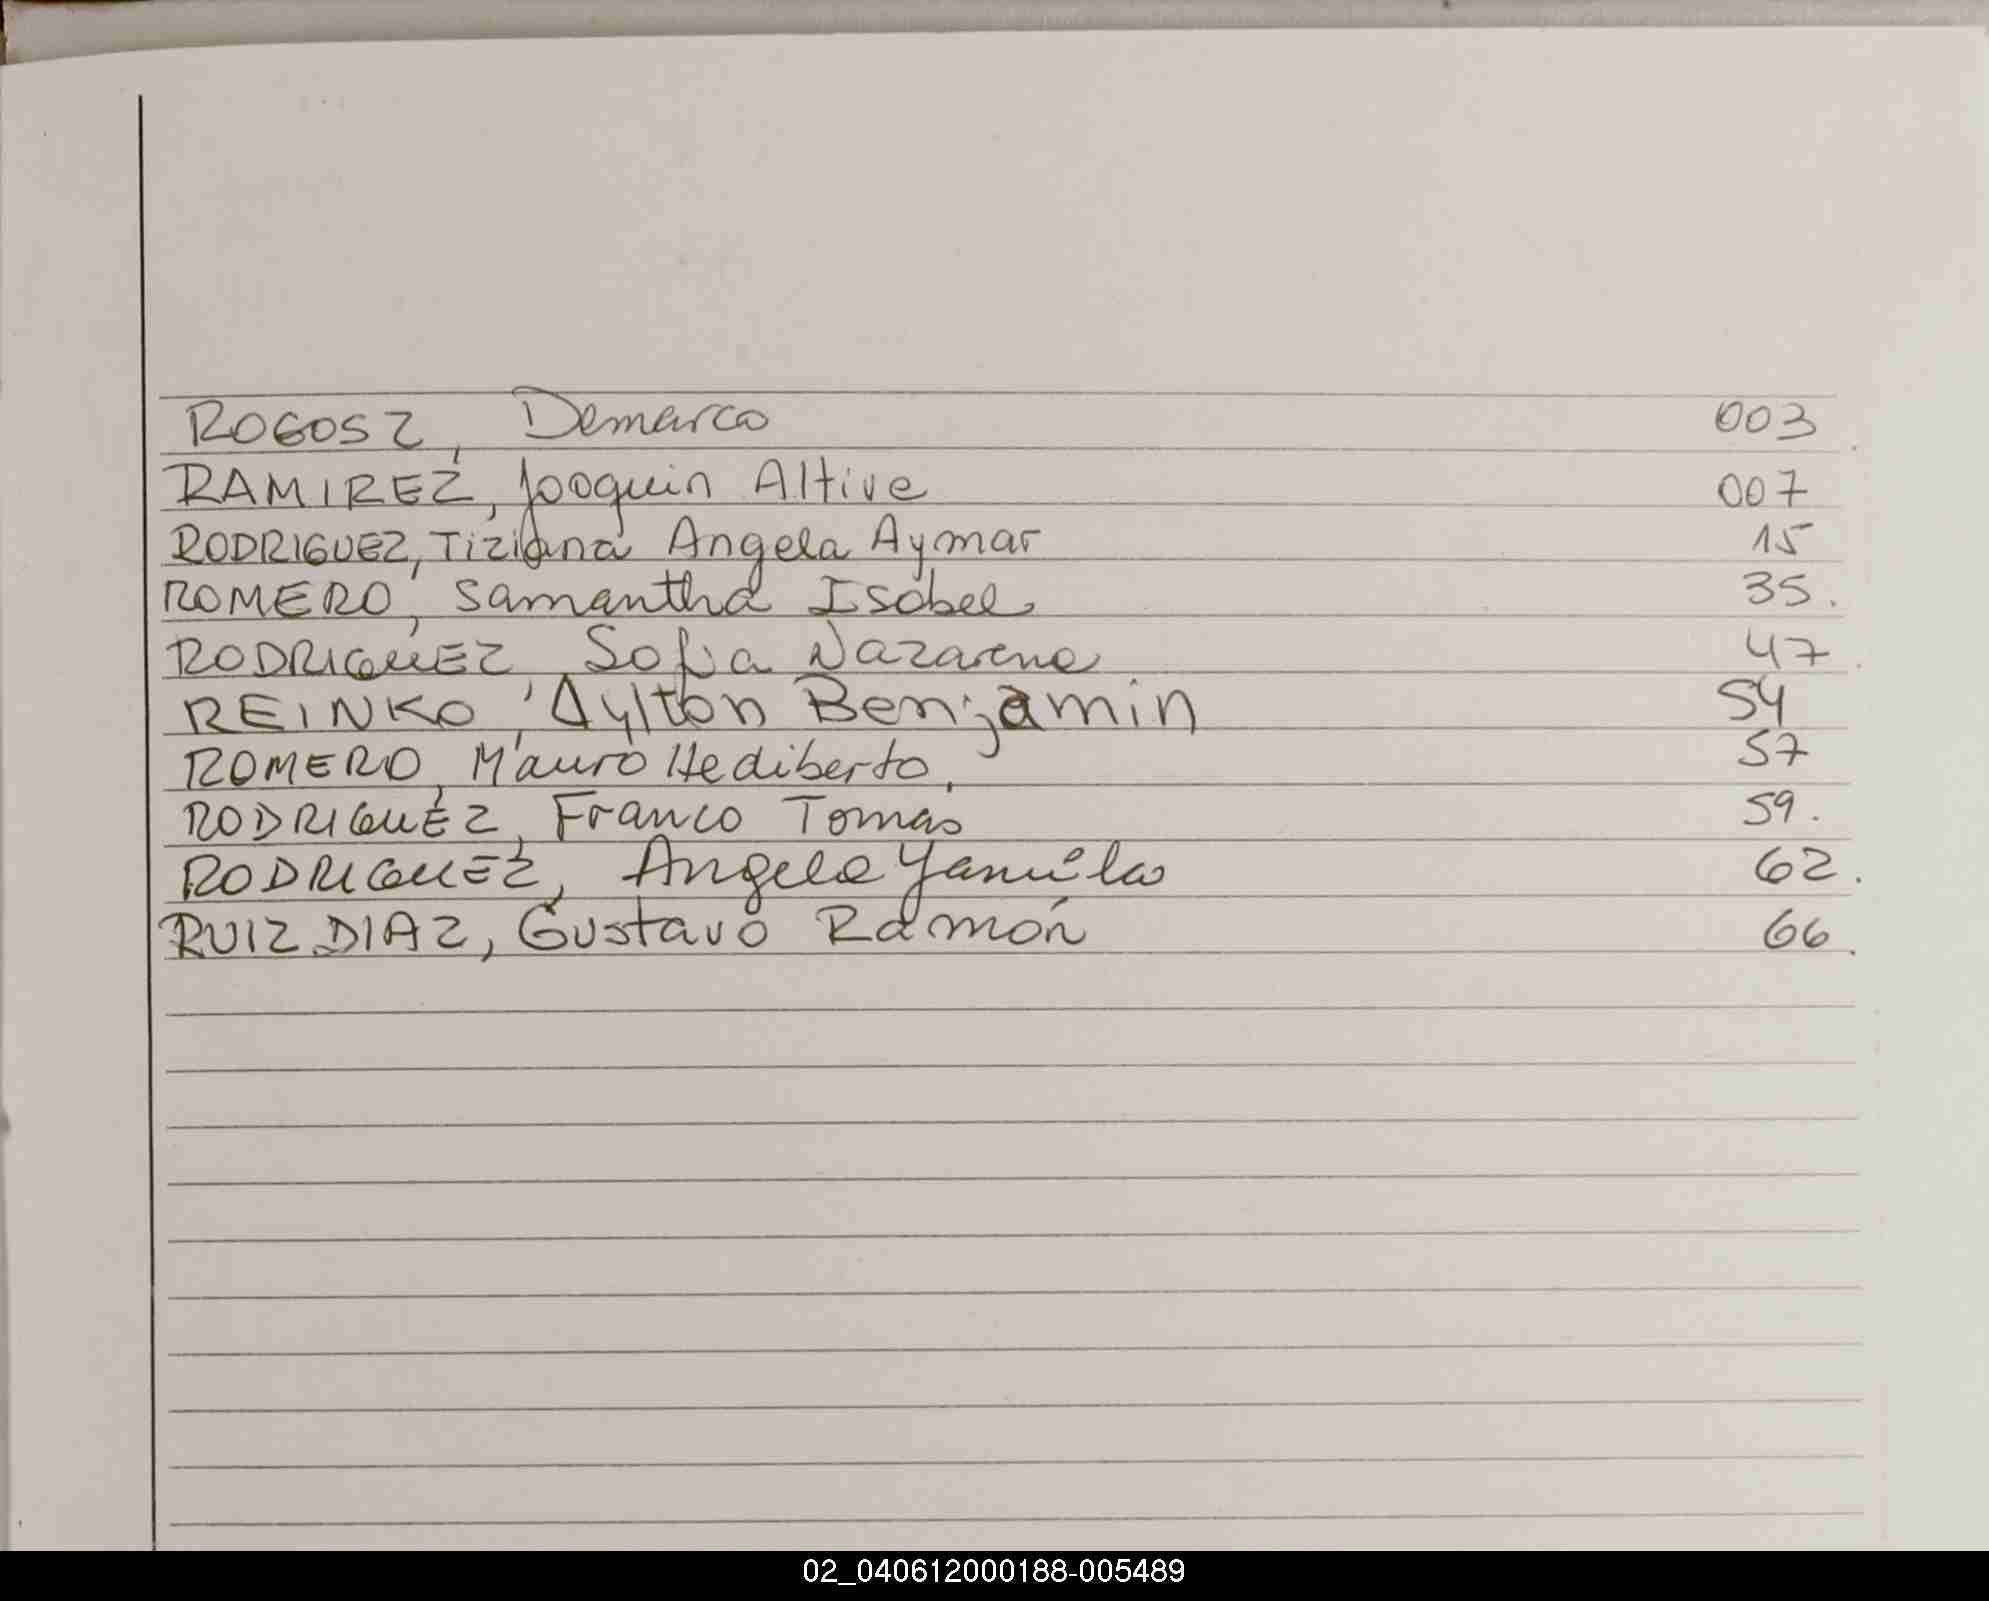 ROGOSZ, Demarco 003
RAMIREZ, Joaquin Altive 007
RODRIGUEZ, Tiziana Angela Aymar 15
ROMERO, Samantha Isabel 35.
RODRIGUEZ, Sofia Nazarena 47.
REINKO, Aylton Benjamin 54
ROMERO, Mauro Hediberto. 57
RODRIGUEZ, Franco Tomás 59.
RODRIGUEZ, Angela Yamila 62.
RUIZ DIAZ, Gustavo Ramón 66.
02_040612000188-005489